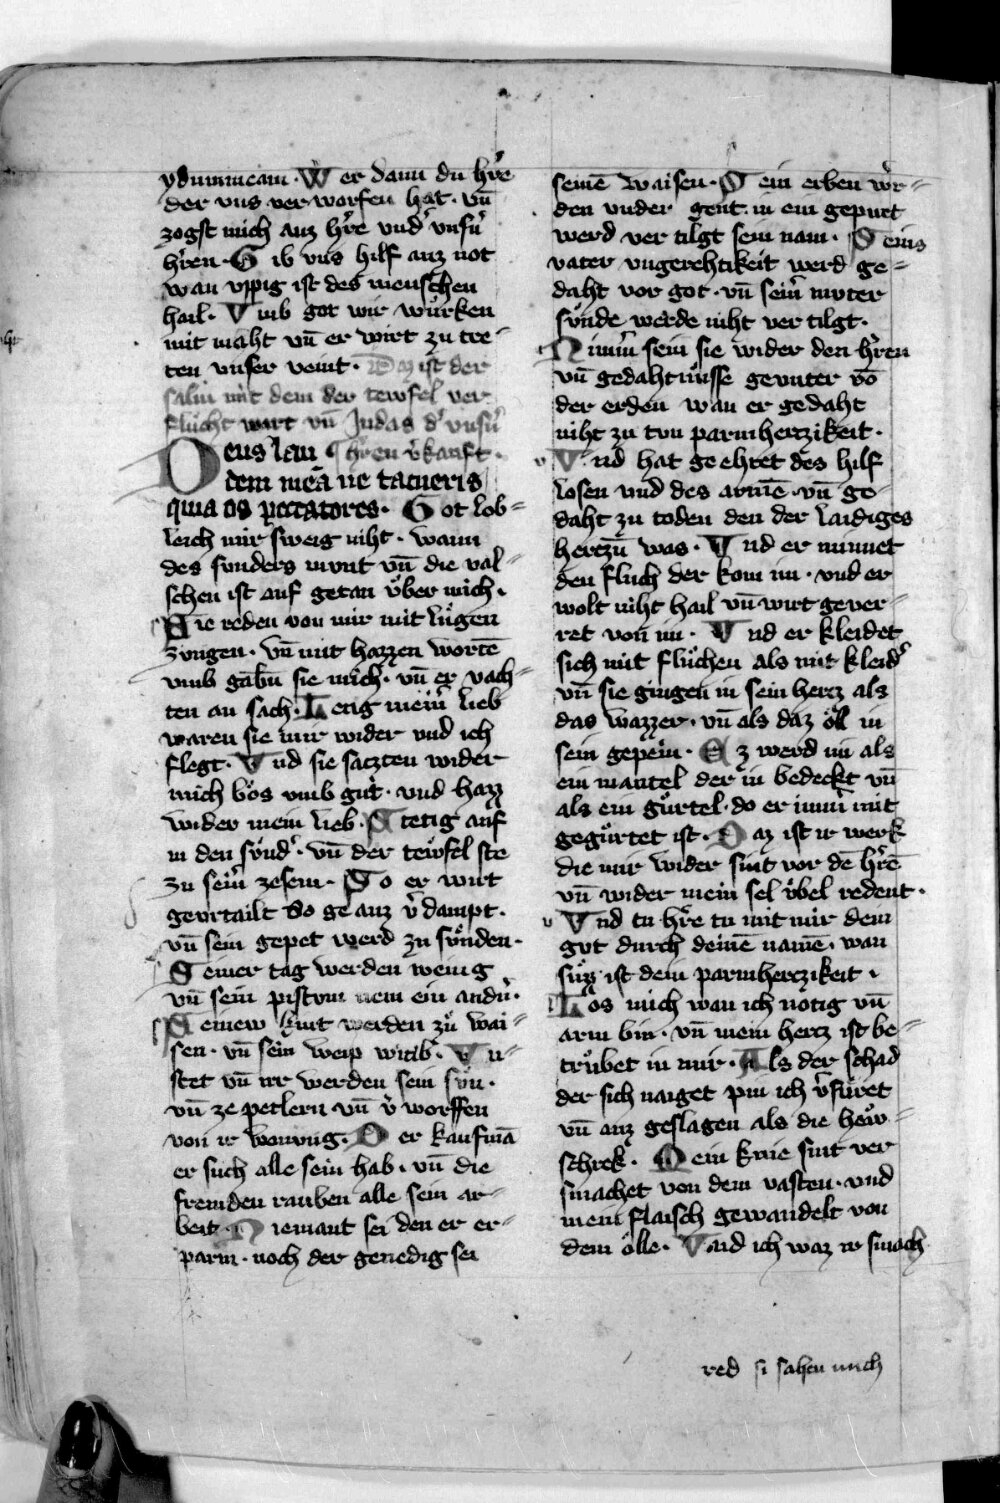 ydumeam · Wer dann du hˀre
der uns verworfen hat · vn̄
zogst mich auz hˀre vndˀ vnsnˀ
hˀren · Gib vns hilf auz not
wan vppig ist des menschen
hail · Vmb got wir wurken
mit maht vn̄ er wirt zu tre-
ten vnser veint · Daz ist der
salm mit dem der tewfel ver
flucht wart vn̄ Judas dˀ vnsnˀ
Deus lau hˀren vˀkauft ·
dem meā ne tacueris
quia os pectatores · Got lob-
leich mir sweig niht · wann
des sunders munt vn̄ die val-
schen ist auf getan vͦber mich ·
Sie reden von mir mit luͦgen
zungen · vn̄ mit hazzen wortē
vmb gabn̄ sie mich · vn̄ er vach-
ten an sach · Letig meinˀ lieb
waren sie mir wider vnd ich
flegt · Vnd sie saczten wider
mich boͤs vmb guͦt · vnd hazz
wider mein lieb · Stetig auf
in den sundˀ · vn̄ der tewfel ste
zu seinˀ zesem · So er wirt
geurtailt do ge auz vˀdampt ·
vn̄ sein gepet werd zu suͦnden ·
Seiner tag werden wenig
vn̄ sein pistum nem ein andnˀ ·
Seinew kint werden zuͦ wai-
sen · vn̄ sein weip witib · Vn-
stet vn̄ irr werden sein suͦn ·
vn̄ ze petlern vn̄ vˀworffen
von ir wonung · Der kaufmā
er such alle sein hab · vn̄ die
fremden rauben alle sein ar-
beit · Niemant sei den er er-
parm · noch der genedig sei
seinē waisen · Sein erben wˀr-
den vnder gent · in ein gepurt
werd ver tilgt sein nam · Seins
vater vngerehtikeit werd ge-
daht vor got · vn̄ seinˀ muter
suͦnde werde niht ver tilgt ·
Nimmˀ sein sie wider den hˀren
vn̄ gedahtnuͦsse gevnter vō
der erden wan er gedaht
niht zu tun parmherczikeit ·
Vnd hat geehtet des hilf
losen vnd des armē · vn̄ ge-
daht zu toden den der laidiges
herczn̄ was · Vnd er minnet
den fluch der kom im · vnd er
wolt niht hail vn̄ wirt gever-
ret von im · Vnd er kleidet
sich mit fluͦchen als mit kleidˀ
vn̄ sie gingen in sein hercz als
das wazzer · vn̄ als daz oͤll in
sein gepein · Ez werd im als
ein mantel der in bedeckt vn̄
als ein guͦrtel · do er immˀ mit
geguͦrtet ist · Daz ist ir werk
die mir wider sint vor dē hˀrē
vn̄ wider mein sel vͦbel redent ·
Vnd tu hˀre tu mit mir dein
gut durch deinē namē · wan
suͦzz ist dein parmherczikeit ·
Loͤs mich wan ich noͤtig vn̄
arm bin · vn̄ mein hercz ist be-
truͦbet in mir · Als der schad
der sich naiget pin ich vˀfuͦret
vn̄ auz geslagen als die hew-
schrek · Mein knie sint ver
smachet von dem vasten · vnd
mein flaisch gewandelt von
dem oͤlle · Vnd ich waz ir smoch
red si sahen mich